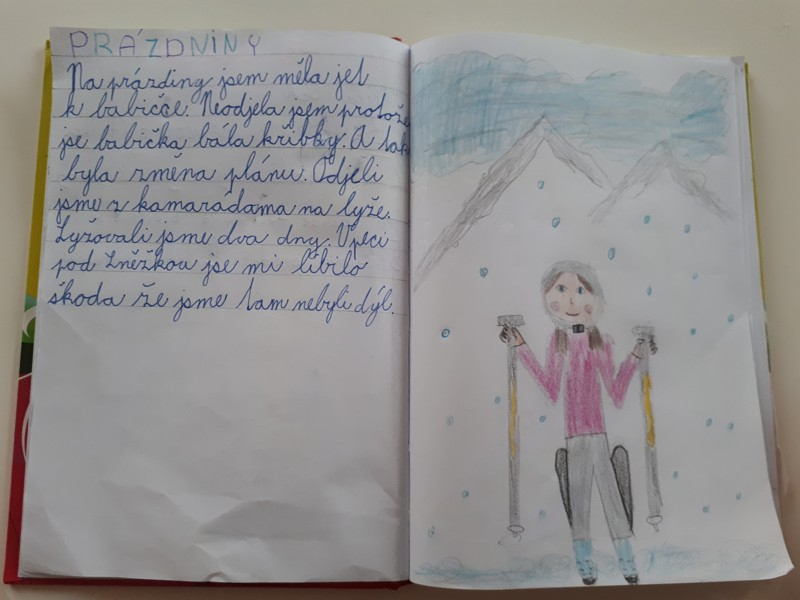 PRÁZDNINY
Na prázding jsem měla jet
k babičce. Neodjela jsem protože
jse babička bála křibky. A tak
byla změna plánu. Odjeli
jsme z kamaradama na lyže.
Lyžovali jsme dva dny. V peci
pod Zněžkou jse mi líbilo
škoda že jsme tam nebyli dýl.